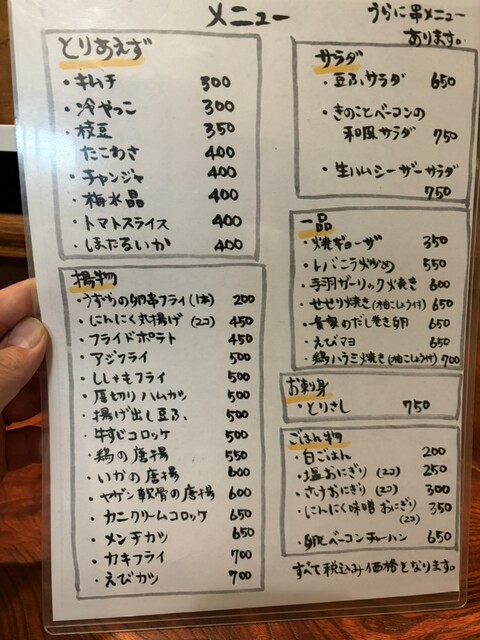 メニュー
うらに串メニュー
あります。
とりあえず
・キムチ 300
・冷やっこ 300
・枝豆 350
たこわさ 400
・チャンジャ 400
・梅水晶 400
・トマトスライス 400
・ほたるいか 400
揚物
うずらの卵串フライ(1本) 200
・にんにく丸揚げ(2コ) 450
・フライドポテト 450
・アジフライ 500
・ししゃもフライ 500
・厚切りハムカツ 500
・揚げ出し豆ふ 500
・牛すじコロッケ 500
・鶏の唐揚 500
・いかの唐揚 600
・ヤゲン軟骨の唐揚 600
・カニクリームコロッケ 650
・メンチカツ 650
・カキフライ 700
・えびカツ 700
サラダ
・豆ふサラダ 650
・きのことベーコンの
和風サラダ 750
・生ハムシーザーサラダ
750
一品
・焼ギョーザ 350
・レバニラ炒め 550
・手羽ガーリック焼き 600
・せせり焼き(柚こしょう付) 650
・吾家のだし巻き卵 650
・えびマヨ 650
・鶏ハラミ焼き(柚こしょう付) 700
お刺身
・とりさし 750
ごはん物
・白ごはん 200
・塩おにぎり(2コ) 250
・さけおにぎり(2コ) 300
・にんにく味噌おにぎり 350
(2コ)
・卵ベーコンチャーハン 650
すべて税込み価格となります。